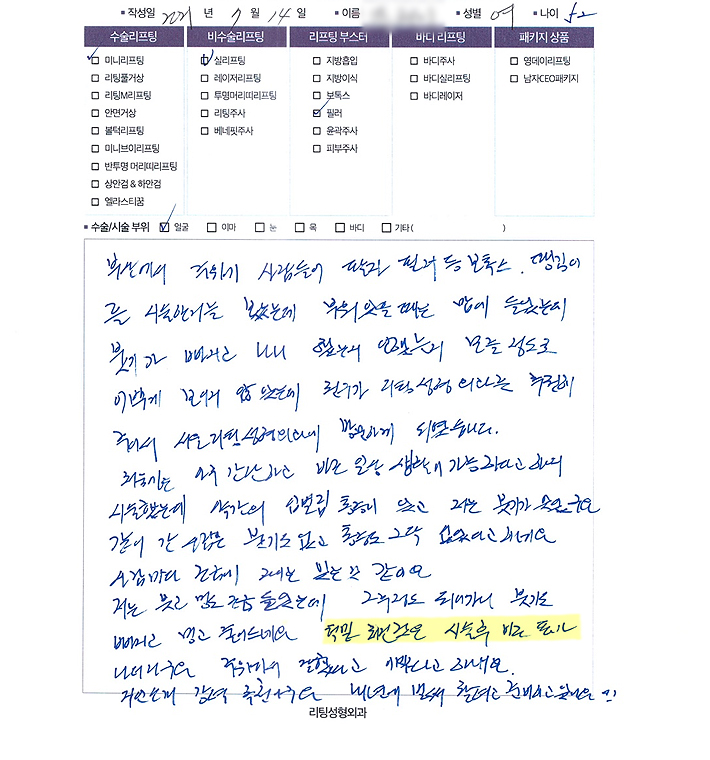 작성일 2021 년 7 월 14 일 이름 성별 여 나이 52
수술리프팅 비수술리프팅 리프팅 부스터 바디 리프팅 패키지 상품
미니리프팅 실리프팅 지방흡입 바디주사 영데이리프팅
리팅풀거상 레이저리프팅 지방이식 바디실리프팅 남자CEO패키지
리팅M리프팅 투명머리띠리프팅 보톡스 바디레이저
안면거상 리팅주사 필러
볼턱리프팅 베네핏주사 윤곽주사
미니브이리프팅 피부주사
반투명 머리띠리프팅
상안검 & 하안검
엘라스티꿈
수술/시술 부위 얼굴 이마 눈 목 바디 기타( )
주위에 사람들이 필러 등 보톡스. 땡김이
를 시술한거를 봤는데 맘에 들었는데
붓기가 빠지고 나니 했는지 안했는지 모를 정도로
이쁘게 보이지 않았는데 친구가 리팅성형외과를 추천해
줘서 서울리팅성형외과에 방문하게 되었습니다.
아주 간단하고 바로 일상 생활이 가능하다고 해서
시술했는데 약간의 통증이 있고 저는 붓기가 있었구요
같이 간 사람은 붓기도 없고 통증도 그닥 없었다고 하네요
사람마다 있는 것 같아요
저는 붓고 멍도 조금 들었는데 붓기도
빠지고 멍도 줄어드네요 시술후 바로 표시가
나더라구요 주위에서 잘했다고 이쁘다고 하네요.
강력 추천하구요 내년에 할려고 준비하고 있어요 !!
리팅성형외과